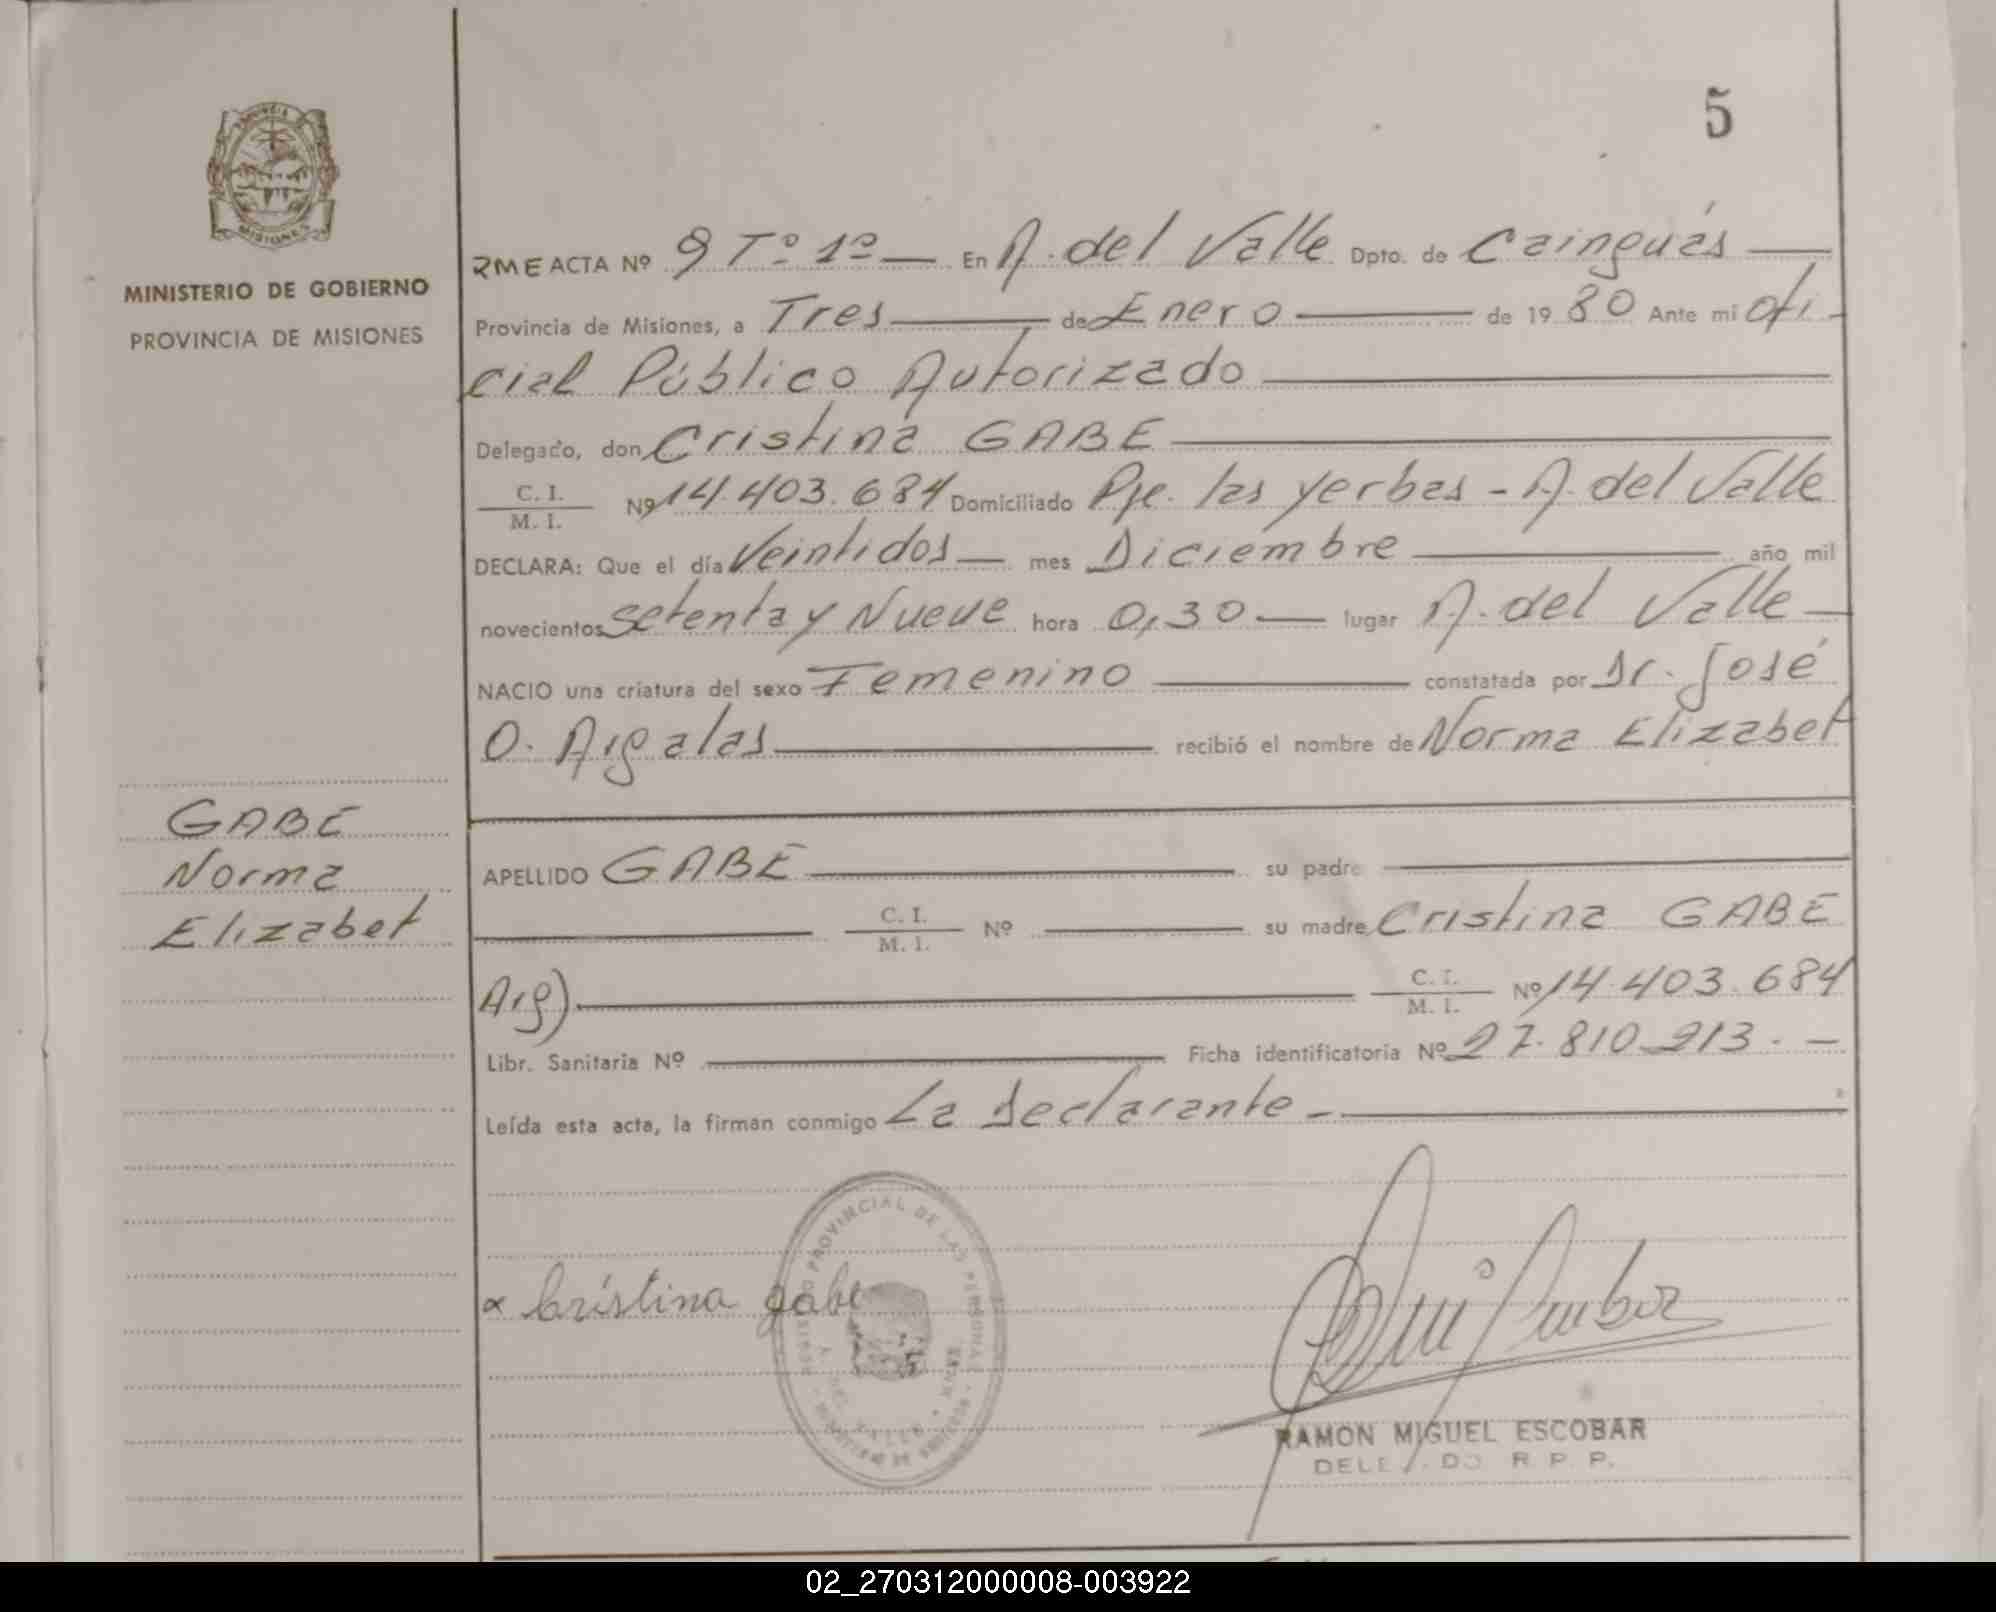 5
PROVINCIA DE
MISIONES
MINISTERIO DE GOBIERNO
PROVINCIA DE MISIONES
RME ACTA Nº 9 Tº 1º — En A. del Valle Dpto. de Cainguás —
Provincia de Misiones, a Tres — de Enero — de 19 80 Ante mi ofi-
cial Público Autorizado —
Delegado, don Cristina GABE —
C. I. / M. I. Nº 14.403.684 Domiciliado Pje. las yerbas - A. del Valle
DECLARA: Que el día Veintidos — mes Diciembre — año mil
novecientos Setenta y Nueve hora 0,30 — lugar A. del Valle —
NACIO una criatura del sexo Femenino — constatada por Dr. José
O. Argalas — recibió el nombre de Norma Elizabet
GABE
Norma
Elizabet
APELLIDO GABE — su padre —
— C. I. / M. I. Nº — su madre Cristina GABE
Arg) — C. I. / M. I. Nº 14.403.684
Libr. Sanitaria Nº — Ficha identificatoria Nº 27.810.913. -
Leída esta acta, la firman conmigo La declarante - —
Cristina gabe
REGISTRO PROVINCIAL DE LAS PERSONAS
A. DEL VALLE
RAMON MIGUEL ESCOBAR
DELEGADO R. P. P.
02_270312000008-003922